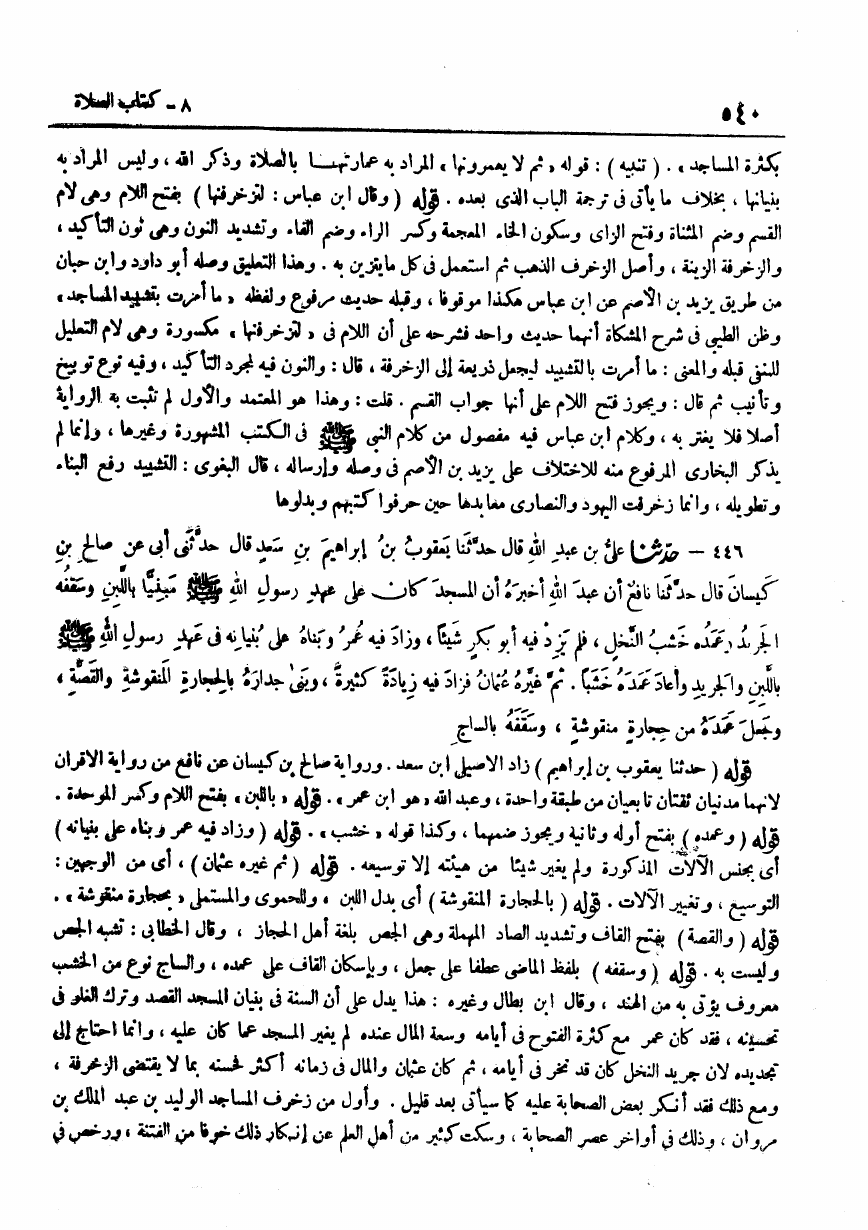 ٥٤٠
٨ - كتاب الصلاة
بكثرة المساجد» . ( تنبيه ) : قوله « ثم لا يعمرونها » المراد به عمارتهـا بالصلاة وذكر الله ، وليس المراد به
بنيانها ، بخلاف ما يأتى فى ترجمة الباب الذى بعده . قوله ( وقال ابن عباس : لتزخرفنها ) بفتح اللام وهى لام
القسم وضم المثناة وفتح الزاى وسكون الخاء المعجمة وكسر الراء وضم الفاء وتشديد النون وهى نون التأكيد ،
والزخرفة الزينة ، وأصل الزخرف الذهب ثم استعمل فى كل ما يتزين به . وهذا التعليق وصله أبو داود وابن حبان
من طريق يزيد بن الأصم عن ابن عباس هكذا موقوفا ، وقبله حديث مرفوع ولفظه « ما أمرت بتشييد المساجد »
وظن الطيبى فى شرح المشكاة أنهما حديث واحد فشرحه على أن اللام فى « لتزخرفنها » مكسورة وهى لام التعليل
للمنفى قبله والمعنى : ما أمرت بالتشييد ليجعل ذريعة إلى الزخرفة ، قال : والنون فيه لمجرد التأكيد ، وفيه نوع توبيخ
وتأنيب ثم قال : ويجوز فتح اللام على أنها جواب القسم . قلت : وهذا هو المعتمد والأول لم تثبت به الرواية
أصلا فلا يغتر به ، وكلام ابن عباس فيه مفصول من كلام النبى ﷺ فى الكتب المشهورة وغيرها ، وإنما لم
يذكر البخارى المرفوع منه للاختلاف على يزيد بن الأصم فى وصله وإرساله ، قال البغوى : التشييد رفع البناء
وتطويله ، وانما زخرفت اليهود والنصارى معابدها حين حرفوا كتبهم وبدلوها
٤٤٦ - حَدّثنا علىُّ بن عبدِ اللهِ قال حدَّثَنا يَعقوبُ بنُ إبراهيمَ بنِ سَعدٍ قال حدَّثَنى أبى عن صالحِ بنِ
كَيسانَ قال حدَّثَنا نافعٌ أن عبدَ اللهِ أخبرَهُ أن المسجدَ كان على عهدِ رسولِ اللهِ ﷺ مَبنِيًّا باللَّبِنِ وسَقفُه
الجَريدُ وعَمَدُه خَشبُ النَّخلِ ، فلم يَزِدْ فيه أبو بكرٍ شَيئًا ، وزادَ فيه عُمرُ وبَناهُ على بُنيانِه فى عَهدِ رسولِ اللهِ ﷺ
باللَّبِنِ والجَريدِ وأعادَ عَمَدَهُ خَشَبًا . ثمَّ غيَّرهُ عُثمانُ فزادَ فيه زيادَةً كثيرةً ، وبَنىٰ جدارَهُ بالحِجارةِ المَنقوشةِ والقَصَّةِ ،
وجَعلَ عَمَدَهُ من حِجارةٍ منقوشةٍ ، وسَقَفَهُ بالساجِ
قوله ( حدثنا يعقوب بن إبراهيم ) زاد الاصيلى ابن سعد . ورواية صالح بن كيسان عن نافع من رواية الاقران
لانهما مدنيان ثقتان تابعيان من طبقة واحدة ، وعبد الله « هو ابن عمر » . قوله « باللبن » بفتح اللام وكسر الموحدة .
قوله ( وعمده ) بفتح أوله وثانية ويجوز ضمهما ، وكذا قوله « خشب » . قوله ( وزاد فيه عمر وبناه على بنيانه )
أى بجنس الآلات المذكورة ولم يغير شيئا من هيئته إلا توسيعه . قوله ( ثم غيره عثمان ) ، أى من الوجهين :
التوسيع ، وتغيير الآلات . قوله ( بالحجارة المنقوشة ) أى بدل اللبن ، وللحموى والمستملى « بحجارة منقوشة » .
قوله ( والقصة ) بفتح القاف وتشديد الصاد المهملة وهى الجص بلغة أهل الحجاز ، وقال الخطابى : تشبه الجص
وليست به . قوله ( وسقفه ) بلفظ الماضى عطفا على جعل ، وبإسكان القاف على عمده ، والساج نوع من الخشب
معروف يؤتى به من الهند ، وقال ابن بطال وغيره : هذا يدل على أن السنة فى بنيان المسجد القصد وترك الغلو فى
تحسينه ، فقد كان عمر مع كثرة الفتوح فى أيامه وسعة المال عنده لم يغير المسجد عما كان عليه ، وانما احتاج إلى
تجديده لان جريد النخل كان قد نخر فى أيامه ، ثم كان عثمان والمال فى زمانه أكثر فحسنه بما لا يقتضى الزخرفة ،
ومع ذلك فقد أنكر بعض الصحابة عليه كما سيأتى بعد قليل . وأول من زخرف المساجد الوليد بن عبد الملك بن
مروان ، وذلك فى أواخر عصر الصحابة ، وسكت كثير من أهل العلم عن إنكار ذلك خوفا من الفتنة ، ورخص فى